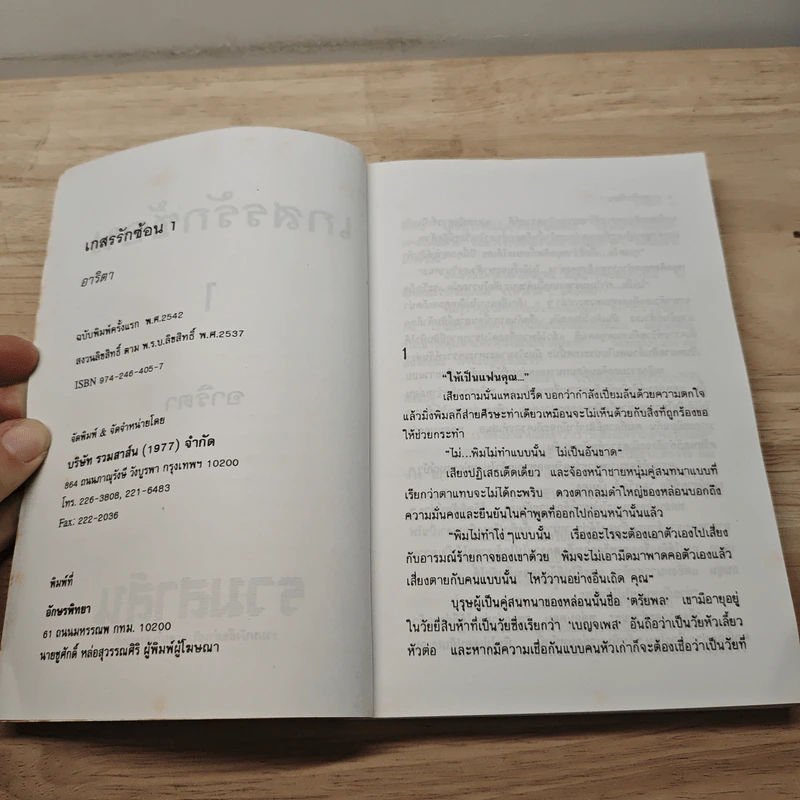 เกสรรักซ้อน 1
อาริตา
ฉบับพิมพ์ครั้งแรก พ.ศ.2542
สงวนลิขสิทธิ์ ตาม พ.ร.บ.ลิขสิทธิ์ พ.ศ.2537
ISBN 974-246-405-7
จัดพิมพ์ & จัดจำหน่ายโดย
บริษัท รวมสาส์น (1977) จำกัด
864 ถนนภาณุรังษี วังบูรพา กรุงเทพฯ 10200
โทร. 226-3808, 221-6483
Fax: 222-2036
พิมพ์ที่
อักษรพิทยา
61 ถนนมหรรณพ กทม. 10200
นายชูศักดิ์ หล่อสุวรรณศิริ ผู้พิมพ์ผู้โฆษณา
1
“ให้เป็นแฟนคุณ...”
เสียงถามนั่นแหลมปรี๊ด บอกว่ากำลังเปี่ยมล้นด้วยความตกใจ
แล้วมิ่งพิมลก็ส่ายศีรษะท่าเดียวเหมือนจะไม่เห็นด้วยกับสิ่งที่ถูกร้องขอ
ให้ช่วยกระทำ
“ไม่...พิมไม่ทำแบบนั้น ไม่เป็นอันขาด”
เสียงปฏิเสธเด็ดเดี่ยว และจ้องหน้าชายหนุ่มคู่สนทนาแบบที่
เรียกว่าตาแทบจะไม่ได้กะพริบ ดวงตากลมดำใหญ่ของหล่อนบอกถึง
ความมั่นคงและยืนยันในคำพูดที่ออกไปก่อนหน้านั้นแล้ว
“พิมไม่ทำโง่ๆแบบนั้น เรื่องอะไรจะต้องเอาตัวเองไปเสี่ยง
กับอารมณ์ร้ายกาจของเขาด้วย พิมจะไม่เอามีดมาพาดคอตัวเองแล้ว
เสี่ยงตายกับคนแบบนั้น ไหว้วานอย่างอื่นเถิด คุณ”
บุรุษผู้เป็นคู่สนทนาของหล่อนนั้นชื่อ ‘ตรัยพล’ เขามีอายุอยู่
ในวัยยี่สิบห้าที่เป็นวัยซึ่งเรียกว่า ‘เบญจเพส’ อันถือว่าเป็นวัยหัวเลี้ยว
หัวต่อ และหากมีความเชื่อกันแบบคนหัวเก่าก็จะต้องเชื่อว่าเป็นวัยที่